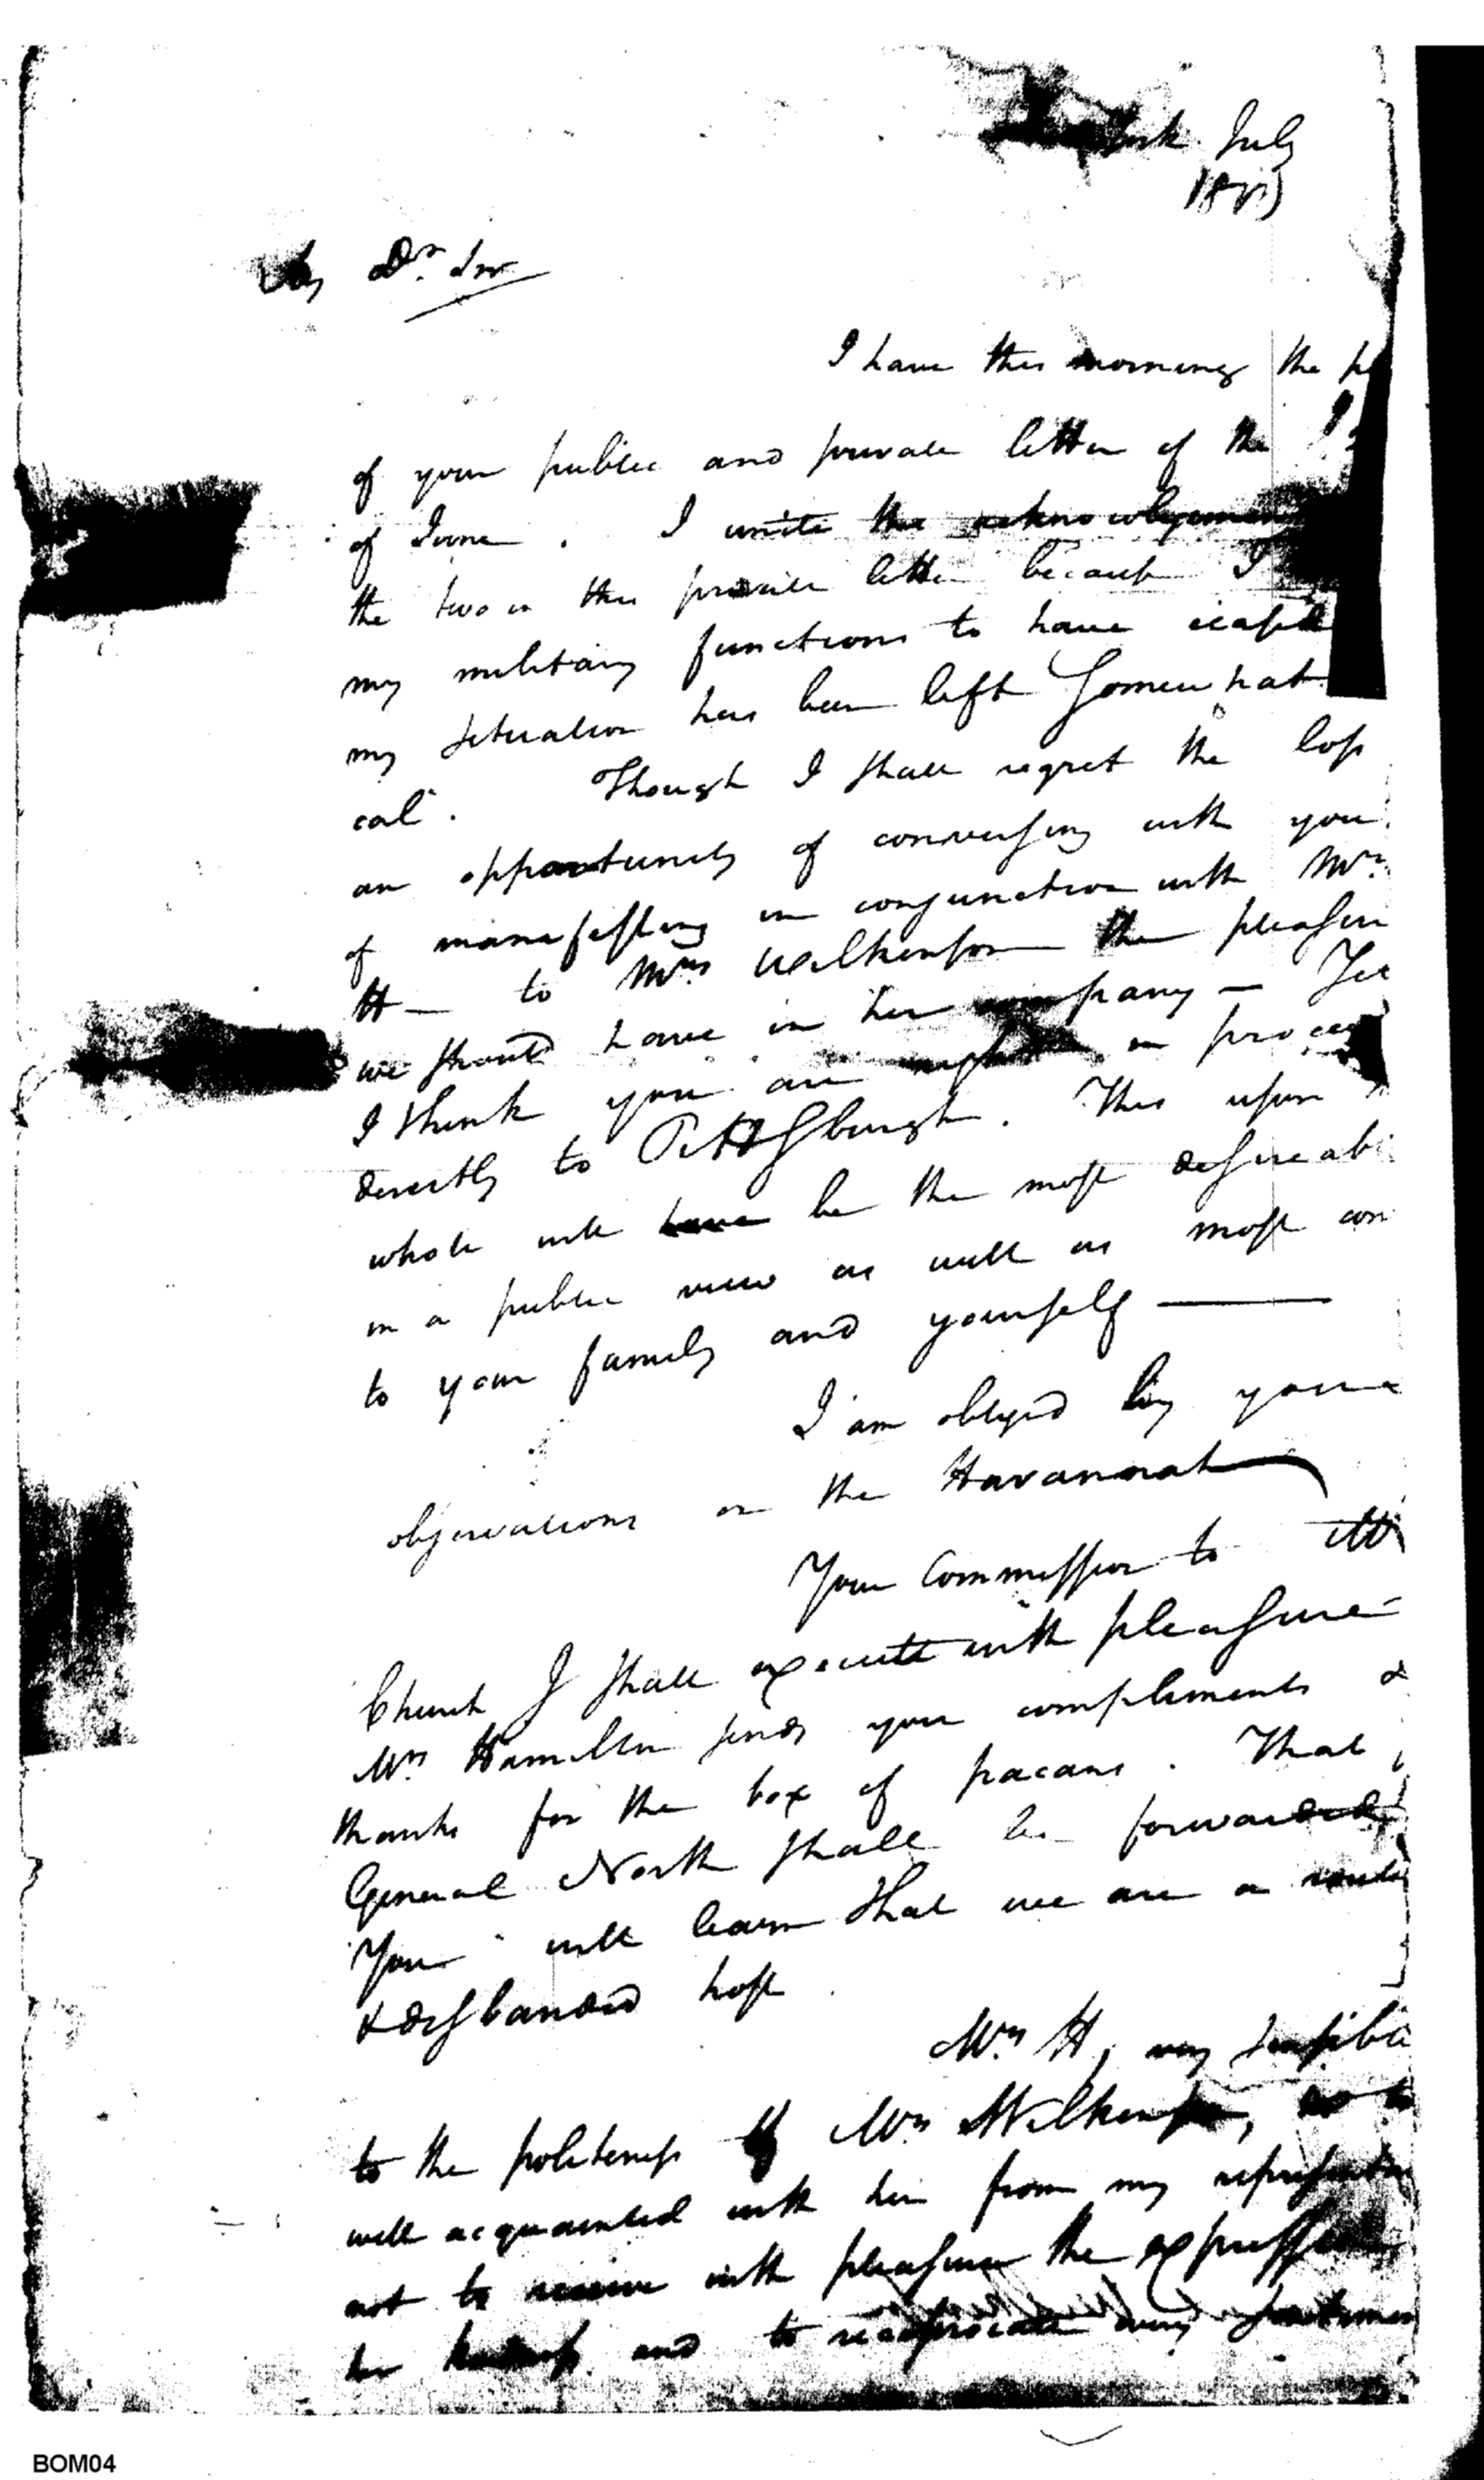 York July
My Dr. Sir
I have this morning the
of your public and private letter of the
of June . I unite the acknowlegement
the two in this private letter because I
my military functions to have
my situation has been left Somewhat
cal .
Though I shall regret the loss
an opportunity of conversing with you
of manifesting in conjunction with Mrs.
H— to Mrs. Wilkinson the pleasure
we should have in her company — Yet
I think you are right in
directly to Pittsburgh. This upon
whole will be the most desireable
in a public view as well as most con
to your family and yourself —
I am obliged by your
observations on the Havannah
Your Commission to Mr
Church I shall execute with pleasure
Mrs. Hamilton sends you compliments &
thanks for the box of pacans . That
General North shall be forwarded
You will learn that we are a
& disbanded host .
Mrs H, very sensible
to the politeness of Mrs Wilkinson,
well acquainted with her from my
not to receive with pleasure the expression
her and to reciprocate every sentiment
BOM04